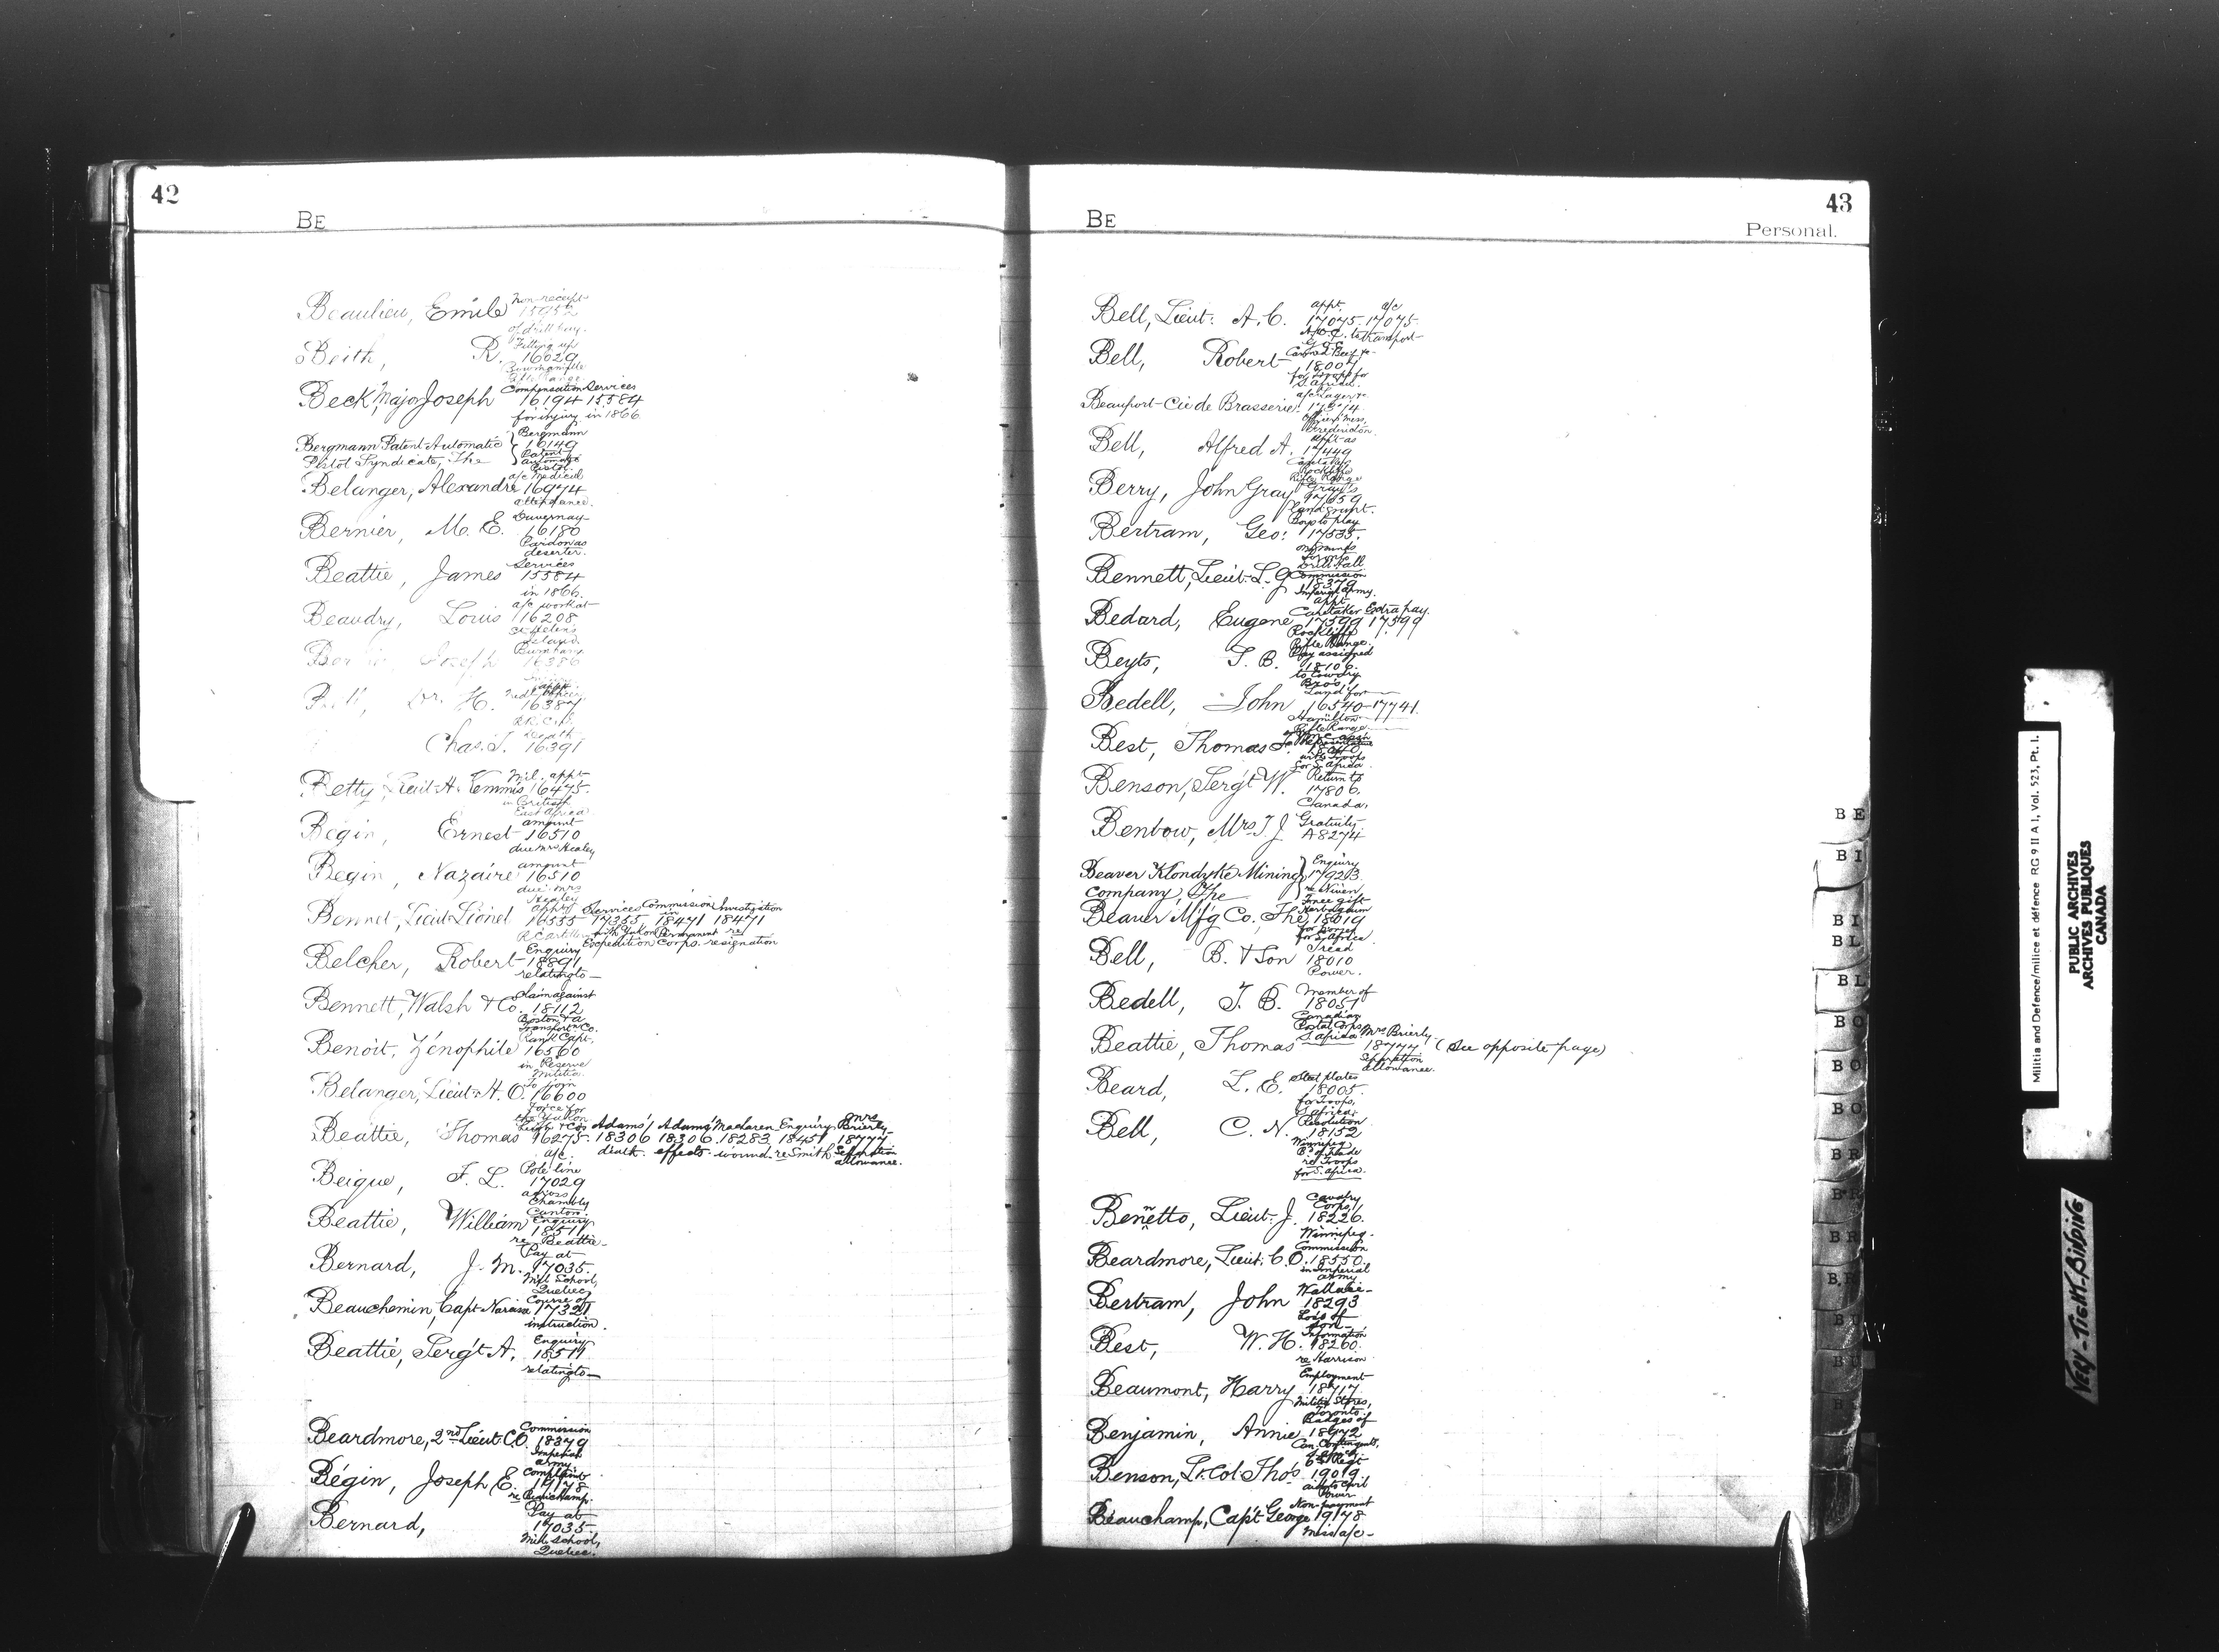 42
BE
Beaulieu, Emile Non-receipt
15952
of drill pay.
Beith, R. Fitting up
16029
Bowmanville
Rifle Range
Beck, Major Joseph Compensation Services
16194 15584
for injury in 1866
Bergmann Patent Automatic Pistol Syndicate, The Bergmann
16149
Patent
Automatic
Pistol
Belanger, Alexandre a/c Medical
16974
attendance.
Bernier, M. E. Duvernay
16180
Pardon as
deserter.
Beattie, James Services
15584
in 1866.
Beaudry, Louis a/c work at
16208
St. Helen's
Island
Joseph
16386
Dr. H. appt.
16387
Chas. T. Death
16391
Betty, Lieut. A. Kemmis Mil. appt
16475
in British
East Africa
Begin, Ernest amount
16510
due Mrs Healey
Begin, Nazaire amount
16510
due Mrs
Healey
Bennet, Lieut. Lionel appt Services Commission Investigation
16555 17355 18471 18471
R.C. Artillery with Yukon Permanent re
Expedition Corps. resignation
Belcher, Robert Enquiry
18891
relating to
Bennett, Walsh & Co. Claim against
18112
Boston & a
Transport'n Co.
Benoit, Zénophile Rank Capt.
16560
in Reserve
Militia.
Belanger, Lieut. A. O. To join
16600
Force for
the Yukon
Beattie, Thomas Adams' Adams' Maclaren Enquiry Mrs Brierly
16275 18306 18306 18283 18451 18777
a/c. death. effects. wound. re Smith Separation
allowance.
Beique, F. L. Pole line
17029
across
Chambly
Canton.
Beattie, William Enquiry
18511
re Beattie
Bernard, J. M. Pay at
17035.
Mil. School,
Quebec
Beauchemin, Capt. Narcisse Course of
17321
instruction.
Beattie, Serg't A. Enquiry
18511
relating to
Beardmore, 2nd Lieut. C.O. Commission
18379
Imperial
Army
Bégin, Joseph E. Complaint
19178
re Beauchamp.
Bernard, Pay at
17035
Mil. School,
Quebec.
43
BE
Personal.
Bell, Lieut. A. C. appt. a/c
17075. 17075.
A.D.C. to transport
G.O.C.
Bell, Robert Canned Beef &c
18004
for Troops for
S. Africa.
Beauport-Cie de Brasserie. a/c Lager &c
Officers' Mess,
Fredericton
Bell, Alfred A. appt as
17449
Caretaker
Rockliffe
Rifle Range
Berry, John Gray Gray's
17659
land grant.
Bertram, Geo: Boys to play
17535.
Toronto
Drill Hall
Bennett, Lieut. L. J. Commission
18379
Imperial Army.
Bedard, Eugene appt. Caretaker Extra pay.
17599 17599
Rockliffe
Rifle Range.
Beyts, T. B. Pay assigned
18106.
to Cowdry
Bros.
Bedell, John Land for
16540-17741.
Hamilton
Rifle Range
Best, Thomas F. Y.M.C. Assn
Representative
with Troops
for S. Africa
Benson, Serg't W. Return to
17806.
Canada.
Benbow, Mrs. T. J. Gratuity
A8274
Beaver Klondyke Mining Company, The Enquiry
17923
re Niven
Beaver M'f'g Co., The Free gift
Herbageum
18019
for horses
for S. Africa
Bell, B. & Son Tread
18010
Power.
Bedell, T. B. Member of
18051
Canadian
Postal Corps
S. Africa
Beattie, Thomas Mrs Brierly
18777 (See opposite page)
Separation
allowance.
Beard, L. E. Steel plates
18005
for Troops,
S. Africa.
Bell, C. N. Resolution
18152
Winnipeg
B'd of Trade
re Troops
for S. Africa.
Bennetto, Lieut. J. Cavalry
Corps
18226.
Winnipeg.
Beardmore, Lieut. C. O. Commission
18550
in Imperial
Army
Bertram, John Wallace
18293
Loss of
son
Best, W. H. Information
18260.
re Harrison
Beaumont, Harry Employment
18717
Militia Stores,
Toronto.
Benjamin, Annie Badges of
18972
Can. Contingents,
S. Africa.
Benson, Lt. Col. Tho's. 6th Reg't
19019
aid to Civil
Power
Beauchamp, Capt. George Non-payment
19178
mess a/c
BE
BI
BI
BL
BL
BO
BO
BO
BR
BR
BR
BR
BU
BU
Militia and Defence/milice et défence RG 9 II A 1, Vol. 523, Pt. 1.
PUBLIC ARCHIVES
ARCHIVES PUBLIQUES
CANADA
VERY-TIGHT-BINDING